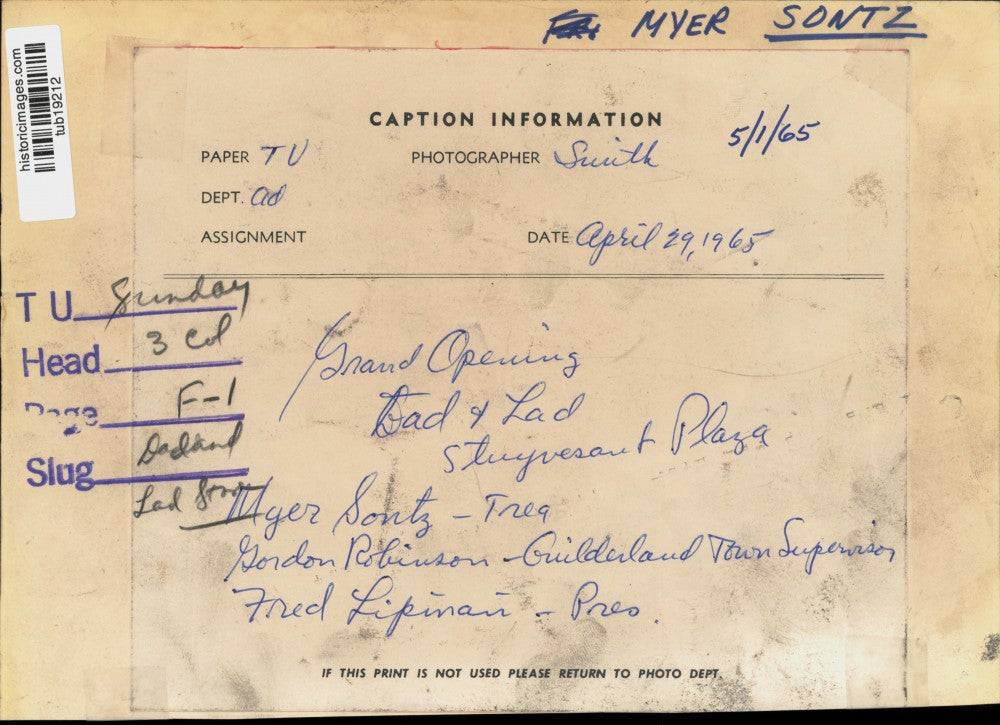 MYER SONTZ
historicimages.com
tub19212
CAPTION INFORMATION
5/1/65
PAPER TU PHOTOGRAPHER Smith
DEPT. ad
ASSIGNMENT DATE April 29, 1965
TU Sunday
Head 3 col
Page F-1
Slug Dad and
Lad Store
Grand Opening
Dad & Lad
Stuyvesant Plaza
Myer Sontz - Trea
Gordon Robinson - Guilderland Town Supervisor
Fred Lipman - Pres.
IF THIS PRINT IS NOT USED PLEASE RETURN TO PHOTO DEPT.